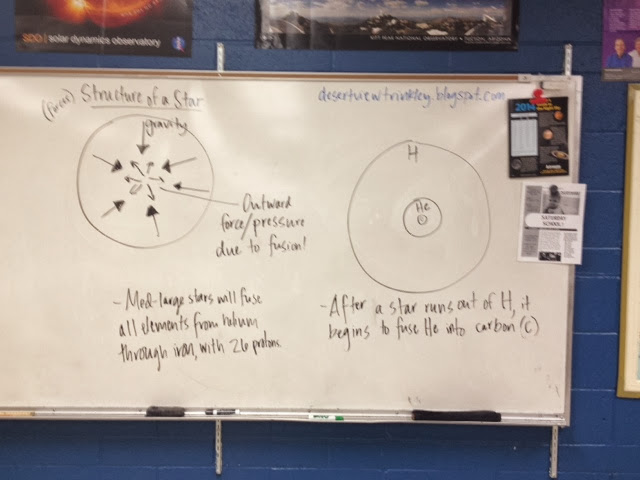 SDO | solar dynamics observatory
KITT PEAK NATIONAL OBSERVATORY
(Forces) Structure of a Star
desertviewtrinkley.blogspot.com
gravity
Outward
force/pressure
due to fusion!
H
He
C
2014
SATURDAY
SCHOOL!
- Med-large stars will fuse
all elements from helium
through iron, with 26 protons.
- After a star runs out of H, it
begins to fuse He into carbon (C)